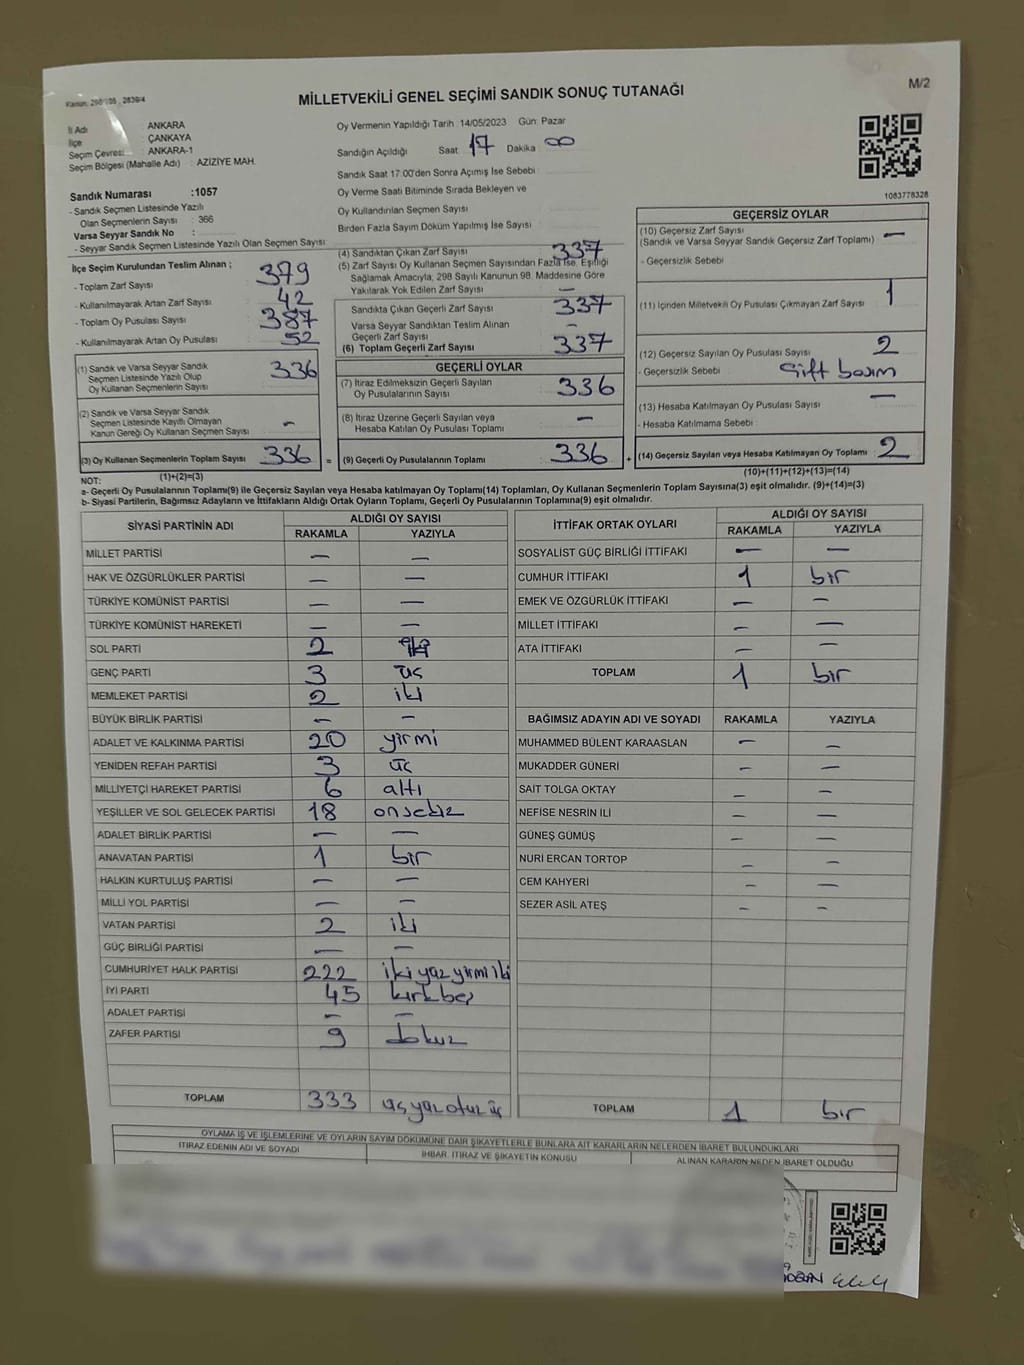 Kanun: 298/105, 2839/4
M/2
MİLLETVEKİLİ GENEL SEÇİMİ SANDIK SONUÇ TUTANAĞI
İl Adı : ANKARA
İlçe : ÇANKAYA
Seçim Çevresi : ANKARA-1
Seçim Bölgesi (Mahalle Adı) : AZİZİYE MAH.
Sandık Numarası :1057
- Sandık Seçmen Listesinde Yazılı
Olan Seçmenlerin Sayısı : 366
Varsa Seyyar Sandık No :
- Seyyar Sandık Seçmen Listesinde Yazılı Olan Seçmen Sayısı
Oy Vermenin Yapıldığı Tarih :14/05/2023 Gün: Pazar
Sandığın Açıldığı Saat 17 Dakika 00
Sandık Saat 17:00'den Sonra Açımış İse Sebebi :
Oy Verme Saati Bitiminde Sırada Bekleyen ve
Oy Kullandırılan Seçmen Sayısı
Birden Fazla Sayım Döküm Yapılmış İse Sayısı
1083778328
İlçe Seçim Kurulundan Teslim Alınan ;
- Toplam Zarf Sayısı 379
- Kullanılmayarak Artan Zarf Sayısı 42
- Toplam Oy Pusulası Sayısı 387
- Kullanılmayarak Artan Oy Pusulası 52
(1) Sandık ve Varsa Seyyar Sandık
Seçmen Listesinde Yazılı Olup
Oy Kullanan Seçmenlerin Sayısı 336
(2) Sandık ve Varsa Seyyar Sandık
Seçmen Listesinde Kayıtlı Olmayan
Kanun Gereği Oy Kullanan Seçmen Sayısı -
(3) Oy Kullanan Seçmenlerin Toplam Sayısı 336 =
(1)+(2)=(3)
(4) Sandıktan Çıkan Zarf Sayısı 337
(5) Zarf Sayısı Oy Kullanan Seçmen Sayısından Fazla İse, Eşitliği
Sağlamak Amacıyla; 298 Sayılı Kanunun 98. Maddesine Göre
Yakılarak Yok Edilen Zarf Sayısı -
Sandıkta Çıkan Geçerli Zarf Sayısı 337
Varsa Seyyar Sandıktan Teslim Alınan
Geçerli Zarf Sayısı -
(6) Toplam Geçerli Zarf Sayısı 337
GEÇERLİ OYLAR
(7) İtiraz Edilmeksizin Geçerli Sayılan
Oy Pusulalarının Sayısı 336
(8) İtiraz Üzerine Geçerli Sayılan veya
Hesaba Katılan Oy Pusulası Toplamı -
(9) Geçerli Oy Pusulalarının Toplamı 336 +
GEÇERSİZ OYLAR
(10) Geçersiz Zarf Sayısı
(Sandık ve Varsa Seyyar Sandık Geçersiz Zarf Toplamı) -
- Geçersizlik Sebebi
(11) İçinden Milletvekili Oy Pusulası Çıkmayan Zarf Sayısı 1
(12) Geçersiz Sayılan Oy Pusulası Sayısı 2
- Geçersizlik Sebebi Çift basım
(13) Hesaba Katılmayan Oy Pusulası Sayısı -
- Hesaba Katılmama Sebebi
(14) Geçersiz Sayılan veya Hesaba Katılmayan Oy Toplamı 2
(10)+(11)+(12)+(13)=(14)
NOT:
a- Geçerli Oy Pusulalarının Toplamı(9) ile Geçersiz Sayılan veya Hesaba katılmayan Oy Toplamı(14) Toplamları, Oy Kullanan Seçmenlerin Toplam Sayısına(3) eşit olmalıdır. (9)+(14)=(3)
b- Siyasi Partilerin, Bağımsız Adayların ve İttifakların Aldığı Ortak Oyların Toplamı, Geçerli Oy Pusulalarının Toplamına(9) eşit olmalıdır.
SİYASİ PARTİNİN ADI ALDIĞI OY SAYISI
RAKAMLA YAZIYLA
MİLLET PARTİSİ - -
HAK VE ÖZGÜRLÜKLER PARTİSİ - -
TÜRKİYE KOMÜNİST PARTİSİ - -
TÜRKİYE KOMÜNİST HAREKETİ - -
SOL PARTİ 2
GENÇ PARTİ 3 üç
MEMLEKET PARTİSİ 2 iki
BÜYÜK BİRLİK PARTİSİ - -
ADALET VE KALKINMA PARTİSİ 20 yirmi
YENİDEN REFAH PARTİSİ 3 üç
MİLLİYETÇİ HAREKET PARTİSİ 6 altı
YEŞİLLER VE SOL GELECEK PARTİSİ 18 onsekiz
ADALET BİRLİK PARTİSİ - -
ANAVATAN PARTİSİ 1 bir
HALKIN KURTULUŞ PARTİSİ - -
MİLLİ YOL PARTİSİ - -
VATAN PARTİSİ 2 iki
GÜÇ BİRLİĞİ PARTİSİ - -
CUMHURİYET HALK PARTİSİ 222 ikiyüzyirmiiki
İYİ PARTİ 45 kırkbeş
ADALET PARTİSİ - -
ZAFER PARTİSİ 9 dokuz
TOPLAM 333 üçyüzotuzüç
İTTİFAK ORTAK OYLARI ALDIĞI OY SAYISI
RAKAMLA YAZIYLA
SOSYALİST GÜÇ BİRLİĞİ İTTİFAKI - -
CUMHUR İTTİFAKI 1 bir
EMEK VE ÖZGÜRLÜK İTTİFAKI - -
MİLLET İTTİFAKI - -
ATA İTTİFAKI - -
TOPLAM 1 bir
BAĞIMSIZ ADAYIN ADI VE SOYADI RAKAMLA YAZIYLA
MUHAMMED BÜLENT KARAASLAN - -
MUKADDER GÜNERİ - -
SAİT TOLGA OKTAY - -
NEFİSE NESRİN İLİ - -
GÜNEŞ GÜMÜŞ - -
NURİ ERCAN TORTOP - -
CEM KAHYERİ - -
SEZER ASİL ATEŞ - -
TOPLAM 1 bir
OYLAMA İŞ VE İŞLEMLERİNE VE OYLARIN SAYIM DÖKÜMÜNE DAİR ŞİKAYETLERLE BUNLARA AİT KARARLARIN NELERDEN İBARET BULUNDUKLARI
İTİRAZ EDENİN ADI VE SOYADI
İHBAR, İTİRAZ VE ŞİKAYETİN KONUSU
ALINAN KARARIN NEDEN İBARET OLDUĞU